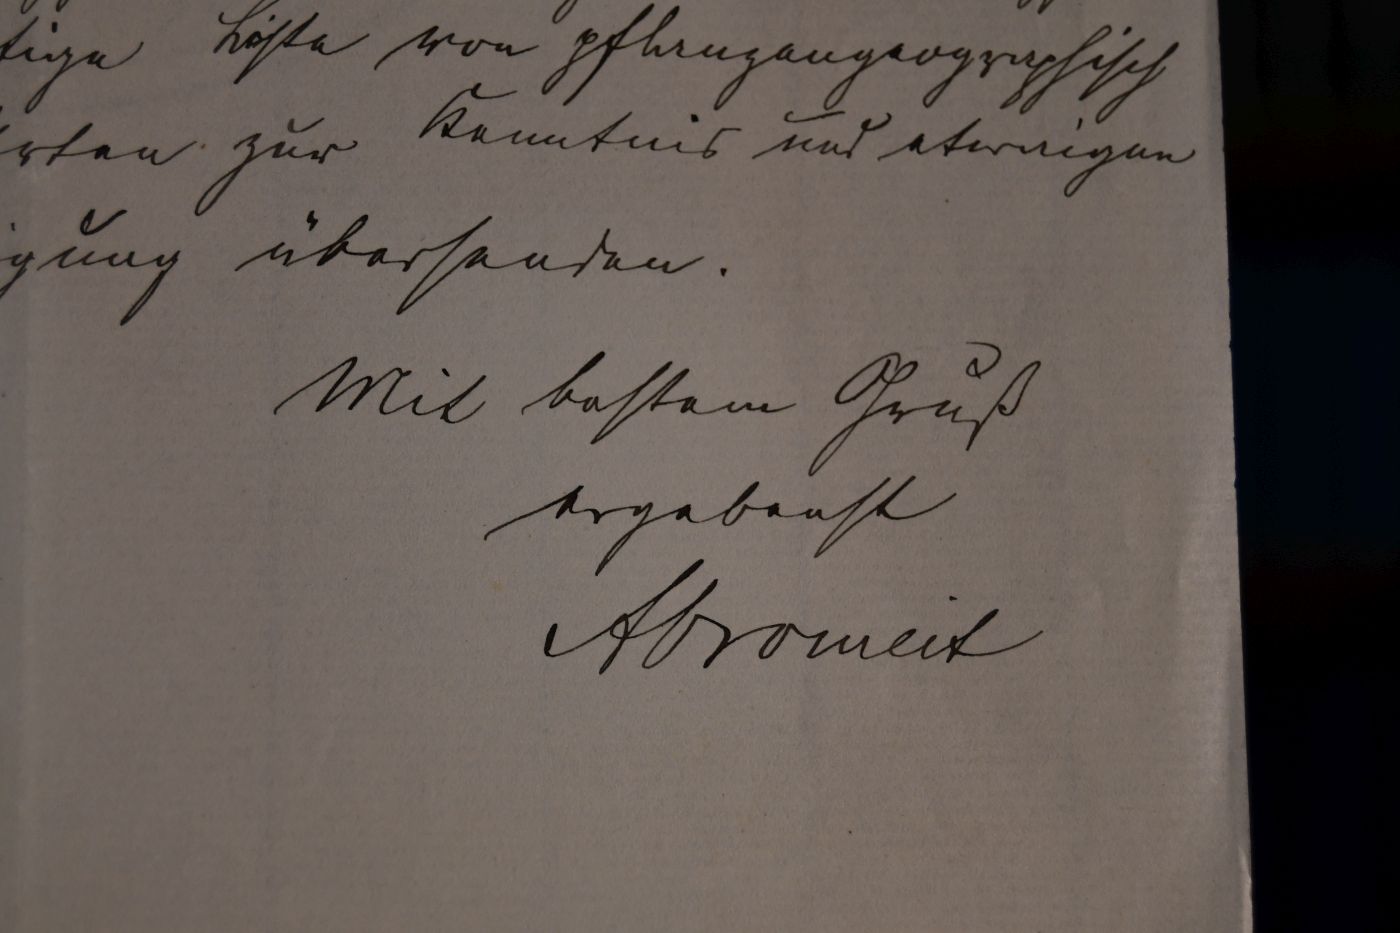 tige Liste von pflanzengeographisch
rten zur Kenntnis und etwaigen
igung übersenden.
Mit bestem Gruß
ergebenst
Abromeit